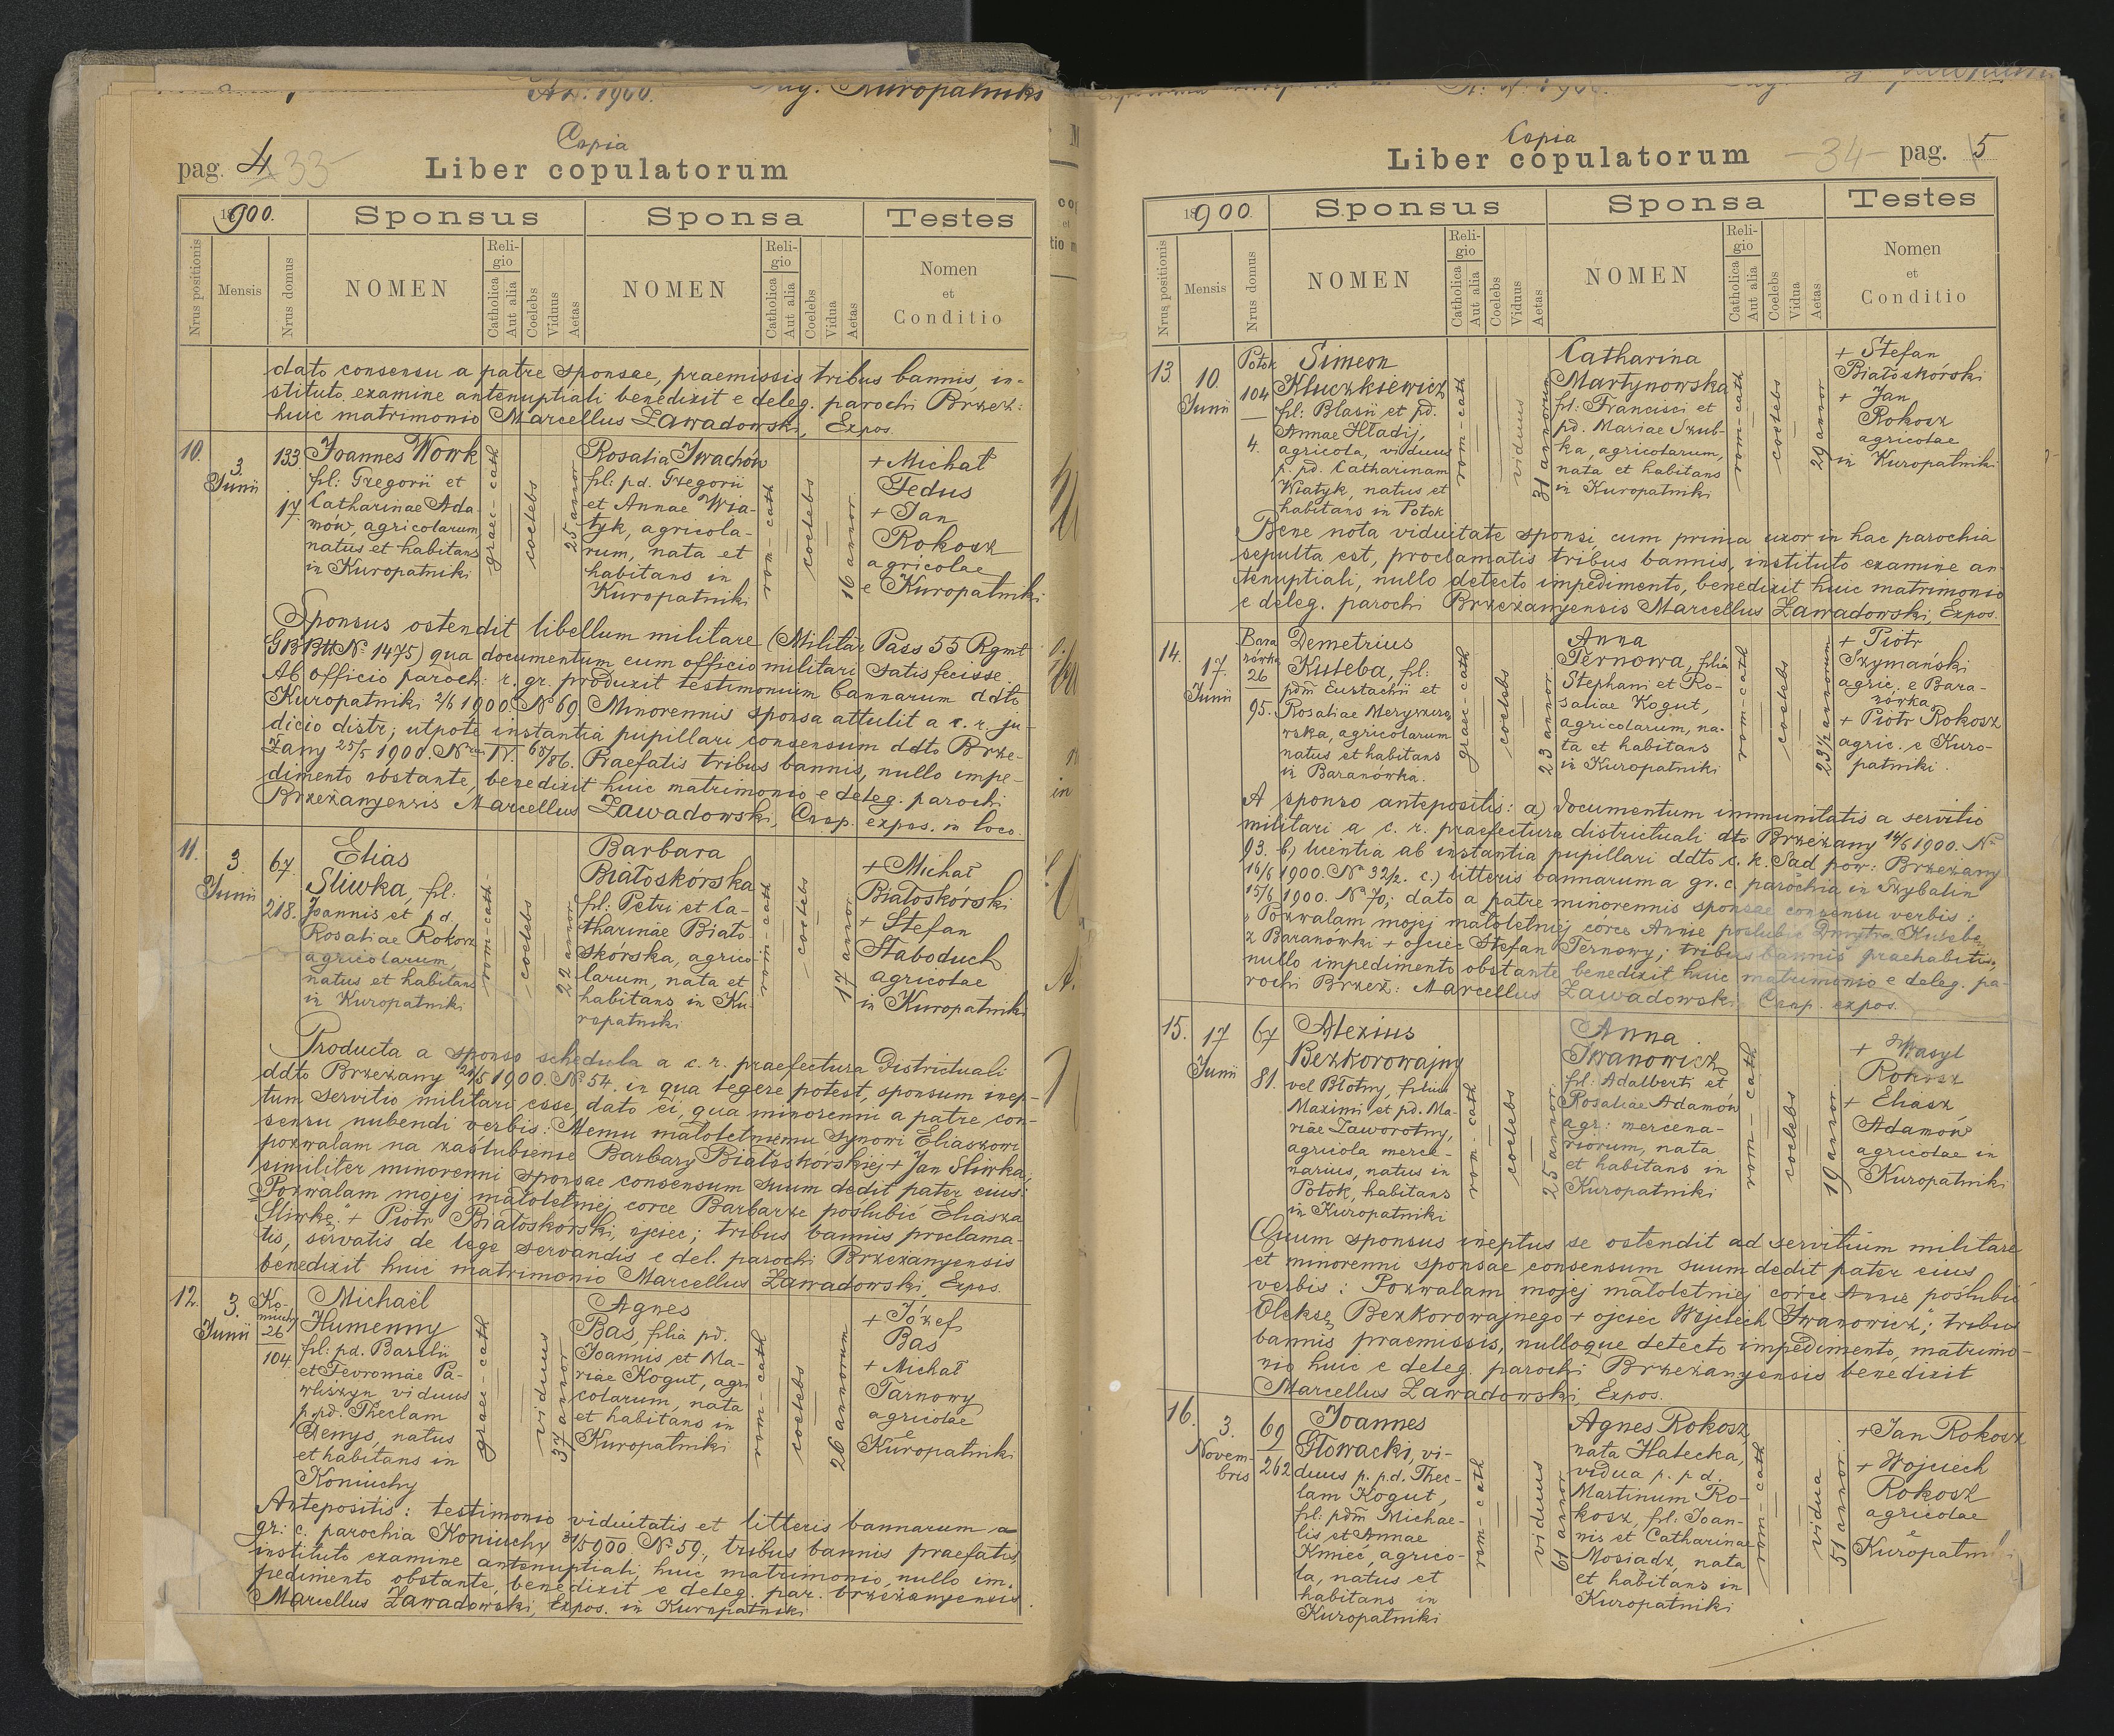 A.D. 1900. Kuropatniki
pag. 4 33
Copia
Liber copulatorum
1900.
Sponsus
Sponsa
Testes
Nrus positionis
Mensis
Nrus domus
NOMEN
Religio
Catholica
Aut alia
Coelebs
Viduus
Aetas
NOMEN
Religio
Catholica
Aut alia
Coelebs
Vidua
Aetas
Nomen
et
Conditio
dato consensu a patre sponsae, praemissis tribus bannis, in-
stituto examine antenuptiali benedixit e deleg. parochi Brzeż:
huic matrimonio Marcellus Zawadowski, Expos.
10.
3.
Junii
133
17.
Joannes Wowk
fil: Gregorii et
Catharinae Ada-
mów, agricolarum,
natus et habitans
in Kuropatniki
graec-cath
coelebs
25 annor
Rosalia Iwachów
fil: pd. Gregorii
et Annae Wia-
tyk, agricola-
rum, nata et
habitans in
Kuropatniki
rom-cath
coelebs
16 annor.
+ Michał
Fedus
+ Jan
Rokosz
agricolae
e Kuropatniki
Sponsus ostendit libellum militare (Militär Pass 55 Rgmt
GBBtt No 1475) qua documentum eum officio militari satisfecisse.
Ab officio paroch: r. gr. produxit testimonium bannarum ddto
Kuropatniki 2/6 1900. No 69. Minorennis sponsa attulit a c. r. ju-
dicio distr; utpote instantia pupillari consensum ddto Brze-
żany 25/5 1900. Nrus IV. 65/86. Praefatis tribus bannis, nullo impe-
dimento obstante, benedixit huic matrimonio e deleg. parochi
Brzeżanyensis Marcellus Zawadowski, Coop. expos. in loco.
11.
3.
Junii
67.
218.
Elias
Śliwka, fil:
Joannis et pd.
Rosaliae Rokosz
agricolarum,
natus et habitans
in Kuropatniki
rom-cath-
coelebs
22 annor
Barbara
Białoskórska
fil: Petri et Ca-
tharinae Biało-
skórska, agrico-
larum, nata et
habitans in Ku-
ropatniki
rom-cath
coelebs
17 annor
+ Michał
Białoskórski
+ Stefan
Słaboduch
agricolae
in Kuropatniki
Producta a sponso schedula a c. r. praefectura Districtuali
ddto Brzeżany 28/5 1900. No 54. in qua legere potest, sponsum inep-
tum servitio militari esse, dato ei, qua minorenni a patre con-
sensu nubendi verbis: Memu małoletniemu synowi Eliaszowi
pozwalam na zaślubienie Barbary Białoskórskiej + Jan Śliwka,
similiter minorenni sponsae consensum suum dedit pater eius:
"Pozwalam mojej małoletniej corce Barbarze poslubić Eliasza
Śliwkę." + Piotr Białoskórski, ojciec; tribus bannis proclama-
tis, servatis de lege servandis e del. parochi Brzeżanyensis
benedixit huic matrimonio Marcellus Zawadowski, Expos.
12.
3.
Junii
Ko-
niuchy
26
104.
Michaël
Humenny
fil: pd. Basilii
et Fevroniae Pa-
wliszyn, viduus
p. pd. Theclam
Denys, natus
et habitans in
Koniuchy
graec-cath
viduus
37 annor
Agnes
Bas, filia pd.
Joannis et Ma-
riae Kogut, agri
colarum, nata
et habitans in
Kuropatniki
rom-cath
coelebs
26 annorum
+ Józef
Bas
+ Michał
Tarnowy
agricolae
e
Kuropatniki
Antepositis: testimonio viduitatis et litteris bannarum a
gr: c. parochia Koniuchy 31/5 900 No 59., tribus bannis praefatis,
instituto examine antenuptiali, huic matrimonio, nullo im-
pedimento obstante, benedixit e deleg. par. brzeżanyensis
Marcellus Zawadowski, Expos. in Kuropatniki
Copia
Liber copulatorum
-34- pag. 5
1900.
Sponsus
Sponsa
Testes
Nrus positionis
Mensis
Nrus domus
NOMEN
Religio
Catholica
Aut alia
Coelebs
Viduus
Aetas
NOMEN
Religio
Catholica
Aut alia
Coelebs
Vidua
Aetas
Nomen
et
Conditio
13.
10.
Junii
Potok
104
4.
Simeon
Kluczkiewicz
fil: Blasii et pd.
Annae Hładij,
agricola, viduus
p. pd. Catharinam
Wiatyk, natus et
habitans in Potok
rom-cath
viduus
31 annorum
Catharina
Martynowska
fil: Francisci et
pd. Mariae Szub-
ka, agricolarum,
nata et habitans
in Kuropatniki
rom-cath
coelebs
29 annor
+ Stefan
Białoskórski
+ Jan
Rokosz
agricolae
in Kuropatniki
Bene nota viduitate sponsi, cum prima uxor in hac parochia
sepulta est, proclamatis tribus bannis, instituto examine an-
tenuptiali, nullo detecto impedimento, benedixit huic matrimonio
e deleg. parochi Brzeżanyensis Marcellus Zawadowski, Expos.
14.
17.
Junii
Bara
nówka
26
95.
Demetrius
Kuleba, fil:
pdm Eustachii et
Rosaliae Meryszczo-
wska, agricolarum
natus et habitans
in Baranówka.
graec-cath
coelebs
23 annor.
Anna
Ternowa, filia
Stephani et Ro-
saliae Kogut,
agricolarum, na-
ta et habitans
in Kuropatniki
rom-cath
coelebs
23 1/2 annorum
+ Piotr
Szymański
agric. e Bara-
nówka
+ Piotr Rokosz
agric. e Kuro-
patniki.
A sponso antepositis: a) documentum immunitatis a servitio
militari a c. r. praefectura districtuali dto Brzeżany 14/6 1900. No
93. b) licentia ab instantia pupillari ddto c. k. Sąd pow: Brzeżany
16/6 1900. No 32/2. c.) litteris bannarum a gr. c. parochia in Szybalin
15/6 1900. No 70; dato a patre minorennis sponsae consensu verbis:
"Pozwalam mojej małoletniej córce Annie poslubić Dmytra Kulebę
z Baranówki + ojciec Stefan Ternowy; tribus bannis praehabitis,
nullo impedimento obstante benedixit huic matrimonio e deleg. pa-
rochi Brzeż: Marcellus Zawadowski, Coop. expos.
15.
17
Junii
67
81.
Alexius
Bezkorowajny
vel Błotny, filius
Maximi et pd. Ma-
riae Zaworotny,
agricola merce-
narius, natus in
Potok, habitans
in Kuropatniki
rom-cath
coelebs
25 annor
Anna
Iwanowicz
fil: Adalberti et
Rosaliae Adamów
agr: mercena-
riorum, nata
et habitans in
Kuropatniki
rom-cath
coelebs
19 annor.
+ Wasyl
Rokosz
+ Eliasz
Adamów
agricolae in
Kuropatniki
Quum sponsus ineptus se ostendit ad servitium militare
et minorenni sponsae consensum suum dedit pater eius
verbis: Pozwalam mojej małoletniej córce Annie poślubić
Oleksę Bezkorowajnego + ojciec Wojciech Iwanowicz"; tribus
bannis praemissis, nulloque detecto impedimento, matrimo-
nio huic e deleg. parochi Brzeżanyensis benedixit
Marcellus Zawadowski, Expos.
16.
3.
Novem-
bris
69
262
Joannes
Głowacki, vi-
duus p. p.d. Thec-
lam Kogut,
fil: pdm Michae-
lis et Annae
Kmieć, agrico-
la, natus et
habitans in
Kuropatniki
rom-cath
viduus
61 annor
Agnes Rokosz,
nata Hałecka,
vidua p. p d.
Martinum Ro-
kosz, fil: Joan-
nis et Catharinae
Mosiądz, nata
et habitans in
Kuropatniki
rom-cath
vidua
51 annor.
+ Jan Rokosz
+ Wojciech
Rokosz
agricolae
e
Kuropatniki